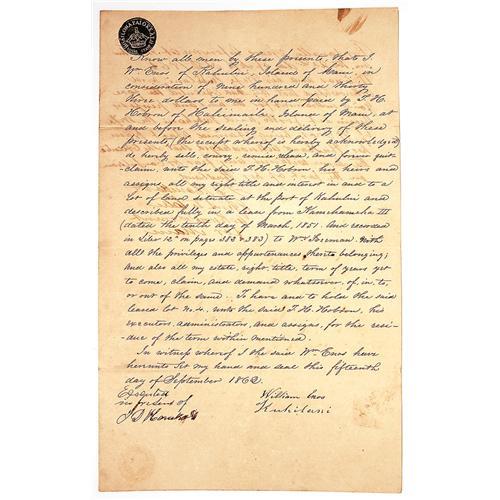 Know all men by these presents, that I
Wm Enos of Kahului, Island of Maui, in
consideration of Nine hundred and thirty
three dollars to me in hand paid by T. H.
Hobron of Kahului Island of Maui, at
and before the sealing and delivery of these
presents, the receipt whereof is hereby acknowledged
do hereby sell, convey, remise, release, and forever quit-
claim, unto the said T. H. Hobron, his heirs and
assigns, all my right title and interest in and to a
Lot of land situate at the port of Kahului and
described fully in a lease from Kamehameha III
(dated the tenth day of March, 1851. And recorded
in Liber 12" on page 382 & 383) to Wm Foreman. With
all the privileges and appurtenances thereto belonging;
And also all my estate, right, title, term of years yet
to come, claim, and demand whatsoever of, in, to,
or out of the same. To have and to hold the said
leased lot No. 4. unto the said T. H. Hobron, his
executors, administrators, and assigns, for the resi-
due of the term within mentioned.
In witness whereof I the said Wm Enos have
hereunto set my hand and seal this fifteenth
day of September 1862
Executed William Enos
in presence of